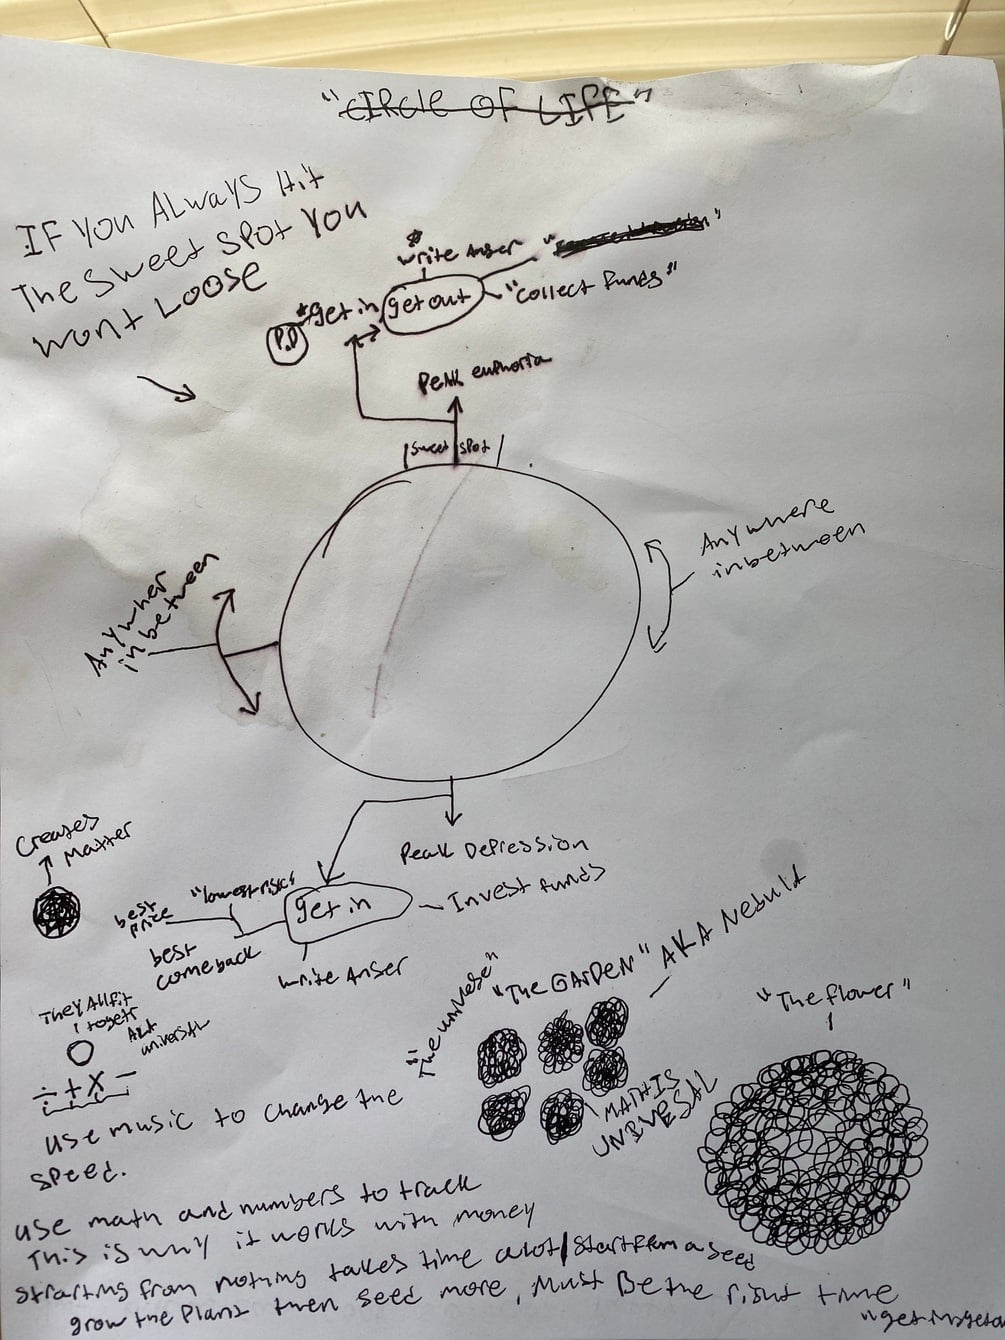 "CIRCLE OF LIFE"
IF YOU ALWAYS Hit
The Sweet Spot YOU
Wont LOOSE
*write Anser
*get in
get out
"Collect Funds"
P.D
Peak euphoria
Sweet spot
Anywhere
inbetween
Anywher
inbetween
Peak Depression
get in
Invest funds
"lowest risk"
best
price
best
comeback
write Anser
Creates
Matter
They All fit
togetr
ALL
universal
÷ + X −
use music to change the
speed.
"The universe"
"The GARDEN" AKA Nebula
MATH IS
UNIVESAL
"The flower"
use math and numbers to track
This is why it works with money
starting from nothing takes time alot/start from a seed
grow the Plant then seed more, Must Be the right time
"get in get o